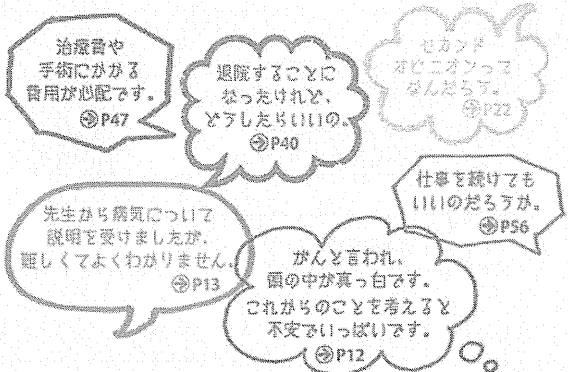 治療費や
手術にかかる
費用が心配です。
➔P47
退院することに
なったけれど、
どうしたらいいの。
➔P40
セカンド
オピニオンって
なんだろう。
➔P22
仕事を続けても
いいのだろうか。
➔P56
先生から病気について
説明を受けましたが、
難しくてよくわかりません。
➔P13
がんと言われ、
頭の中が真っ白です。
これからのことを考えると
不安でいっぱいです。
➔P12